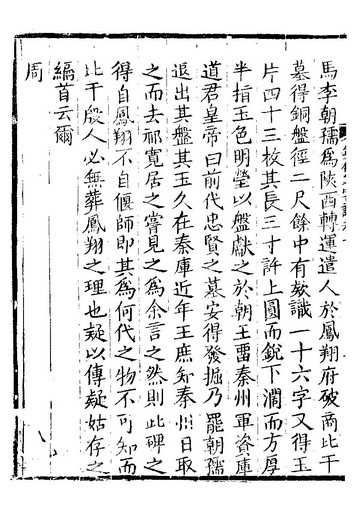 馬李朝孺為陝西轉運遣人於鳳翔府破商比干
墓得銅盤徑二尺餘中有欵識一十六字又得玉
片四十三枚其長三寸許上圓而銳下濶而方厚
半指玉色明瑩以盤獻之於朝玉留秦州軍資庫
道君皇帝曰前代忠賢之墓安得發掘乃罷朝孺
退出其盤其玉久在秦庫近年王庶知秦州日取
之而去祁寬居之嘗見之為余言之然則此碑之
得自鳳翔不自偃師即其為何代之物不可知而
比干殷人必無葬鳳翔之理也疑以傳疑姑存之
編首云爾
周